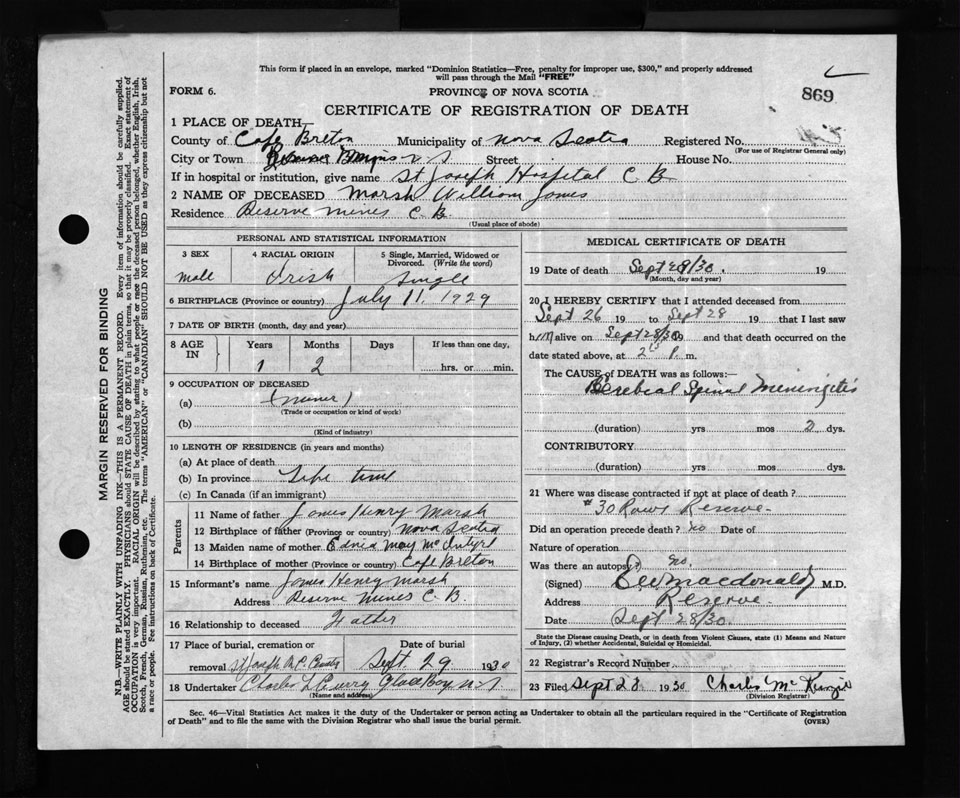 This form if placed in an envelope, marked "Dominion Statistics—Free, penalty for improper use, $300," and properly addressed
will pass through the Mail "FREE"
FORM 6.
PROVINCE OF NOVA SCOTIA
869
CERTIFICATE OF REGISTRATION OF DEATH
1 PLACE OF DEATH—
County of Cape Breton Municipality of Nova Scotia Registered No.
(For use of Registrar General only)
City or Town Reserve Mines N.S Street House No.
If in hospital or institution, give name St Joseph Hospital C B
2 NAME OF DECEASED Marsh William James
Residence Reserve Mines C. B.
(Usual place of abode)
PERSONAL AND STATISTICAL INFORMATION
3 SEX 4 RACIAL ORIGIN 5 Single, Married, Widowed or Divorced. (Write the word)
Male Irish Single
6 BIRTHPLACE (Province or country) July 11, 1929
7 DATE OF BIRTH (month, day and year)
8 AGE IN Years Months Days If less than one day,
1 2 hrs. or min.
9 OCCUPATION OF DECEASED
(a) (miner)
(Trade or occupation or kind of work)
(b)
(Kind of industry)
10 LENGTH OF RESIDENCE (in years and months)
(a) At place of death
(b) In province Life time
(c) In Canada (if an immigrant)
Parents
11 Name of father James Henry Marsh
12 Birthplace of father (Province or country) Nova Scotia
13 Maiden name of mother Ednia May McIntyre
14 Birthplace of mother (Province or country) Cape Breton
15 Informant's name James Henry Marsh
Address Reserve Mines C. B.
16 Relationship to deceased Father
17 Place of burial, cremation or Date of burial
removal St Joseph R.C. Sept. 29 1930
18 Undertaker Charles L Curry Glace Bay N-S
(Name and address)
MEDICAL CERTIFICATE OF DEATH
19 Date of death Sept 28/30. 19
(Month, day and year)
20 I HEREBY CERTIFY that I attended deceased from
Sept 26 19 to Sept 28 19 that I last saw
him alive on Sept 28/30 19 and that death occurred on the
date stated above, at 2 P. m.
The CAUSE of DEATH was as follows:—
Cerebral Spinal Meningitis
(duration) yrs mos 2 dys.
CONTRIBUTORY
(duration) yrs. mos dys.
21 Where was disease contracted if not at place of death?
#30 Rows Reserve-
Did an operation precede death? no Date of
Nature of operation
Was there an autopsy? no.
(Signed) Macdonald M.D.
Address Reserve
Date Sept 28/30.
State the Disease causing Death, or in death from Violent Causes, state (1) Means and Nature
of Injury, (2) whether Accidental, Suicidal or Homicidal.
22 Registrar's Record Number
23 Filed Sept 28 1930 Charles McKenzie
(Division Registrar)
Sec. 46—Vital Statistics Act makes it the duty of the Undertaker or person acting as Undertaker to obtain all the particulars required in the "Certificate of Registration
of Death" and to file the same with the Division Registrar who shall issue the burial permit.
(OVER)
MARGIN RESERVED FOR BINDING
N.B.—WRITE PLAINLY WITH UNFADING INK—THIS IS A PERMANENT RECORD. Every item of information should be carefully supplied.
AGE should be stated EXACTLY. PHYSICIANS should STATE CAUSE OF DEATH in plain terms, so that it may be properly classified. Exact statement of
OCCUPATION is very important. RACIAL ORIGIN will be described by stating to what people or race the deceased person belonged, whether English, Irish,
Scotch, French, German, Russian, Ruthenian, etc. The terms "AMERICAN" or "CANADIAN" SHOULD NOT BE USED as they express citizenship but not
a race or people. See instructions on back of Certificate.